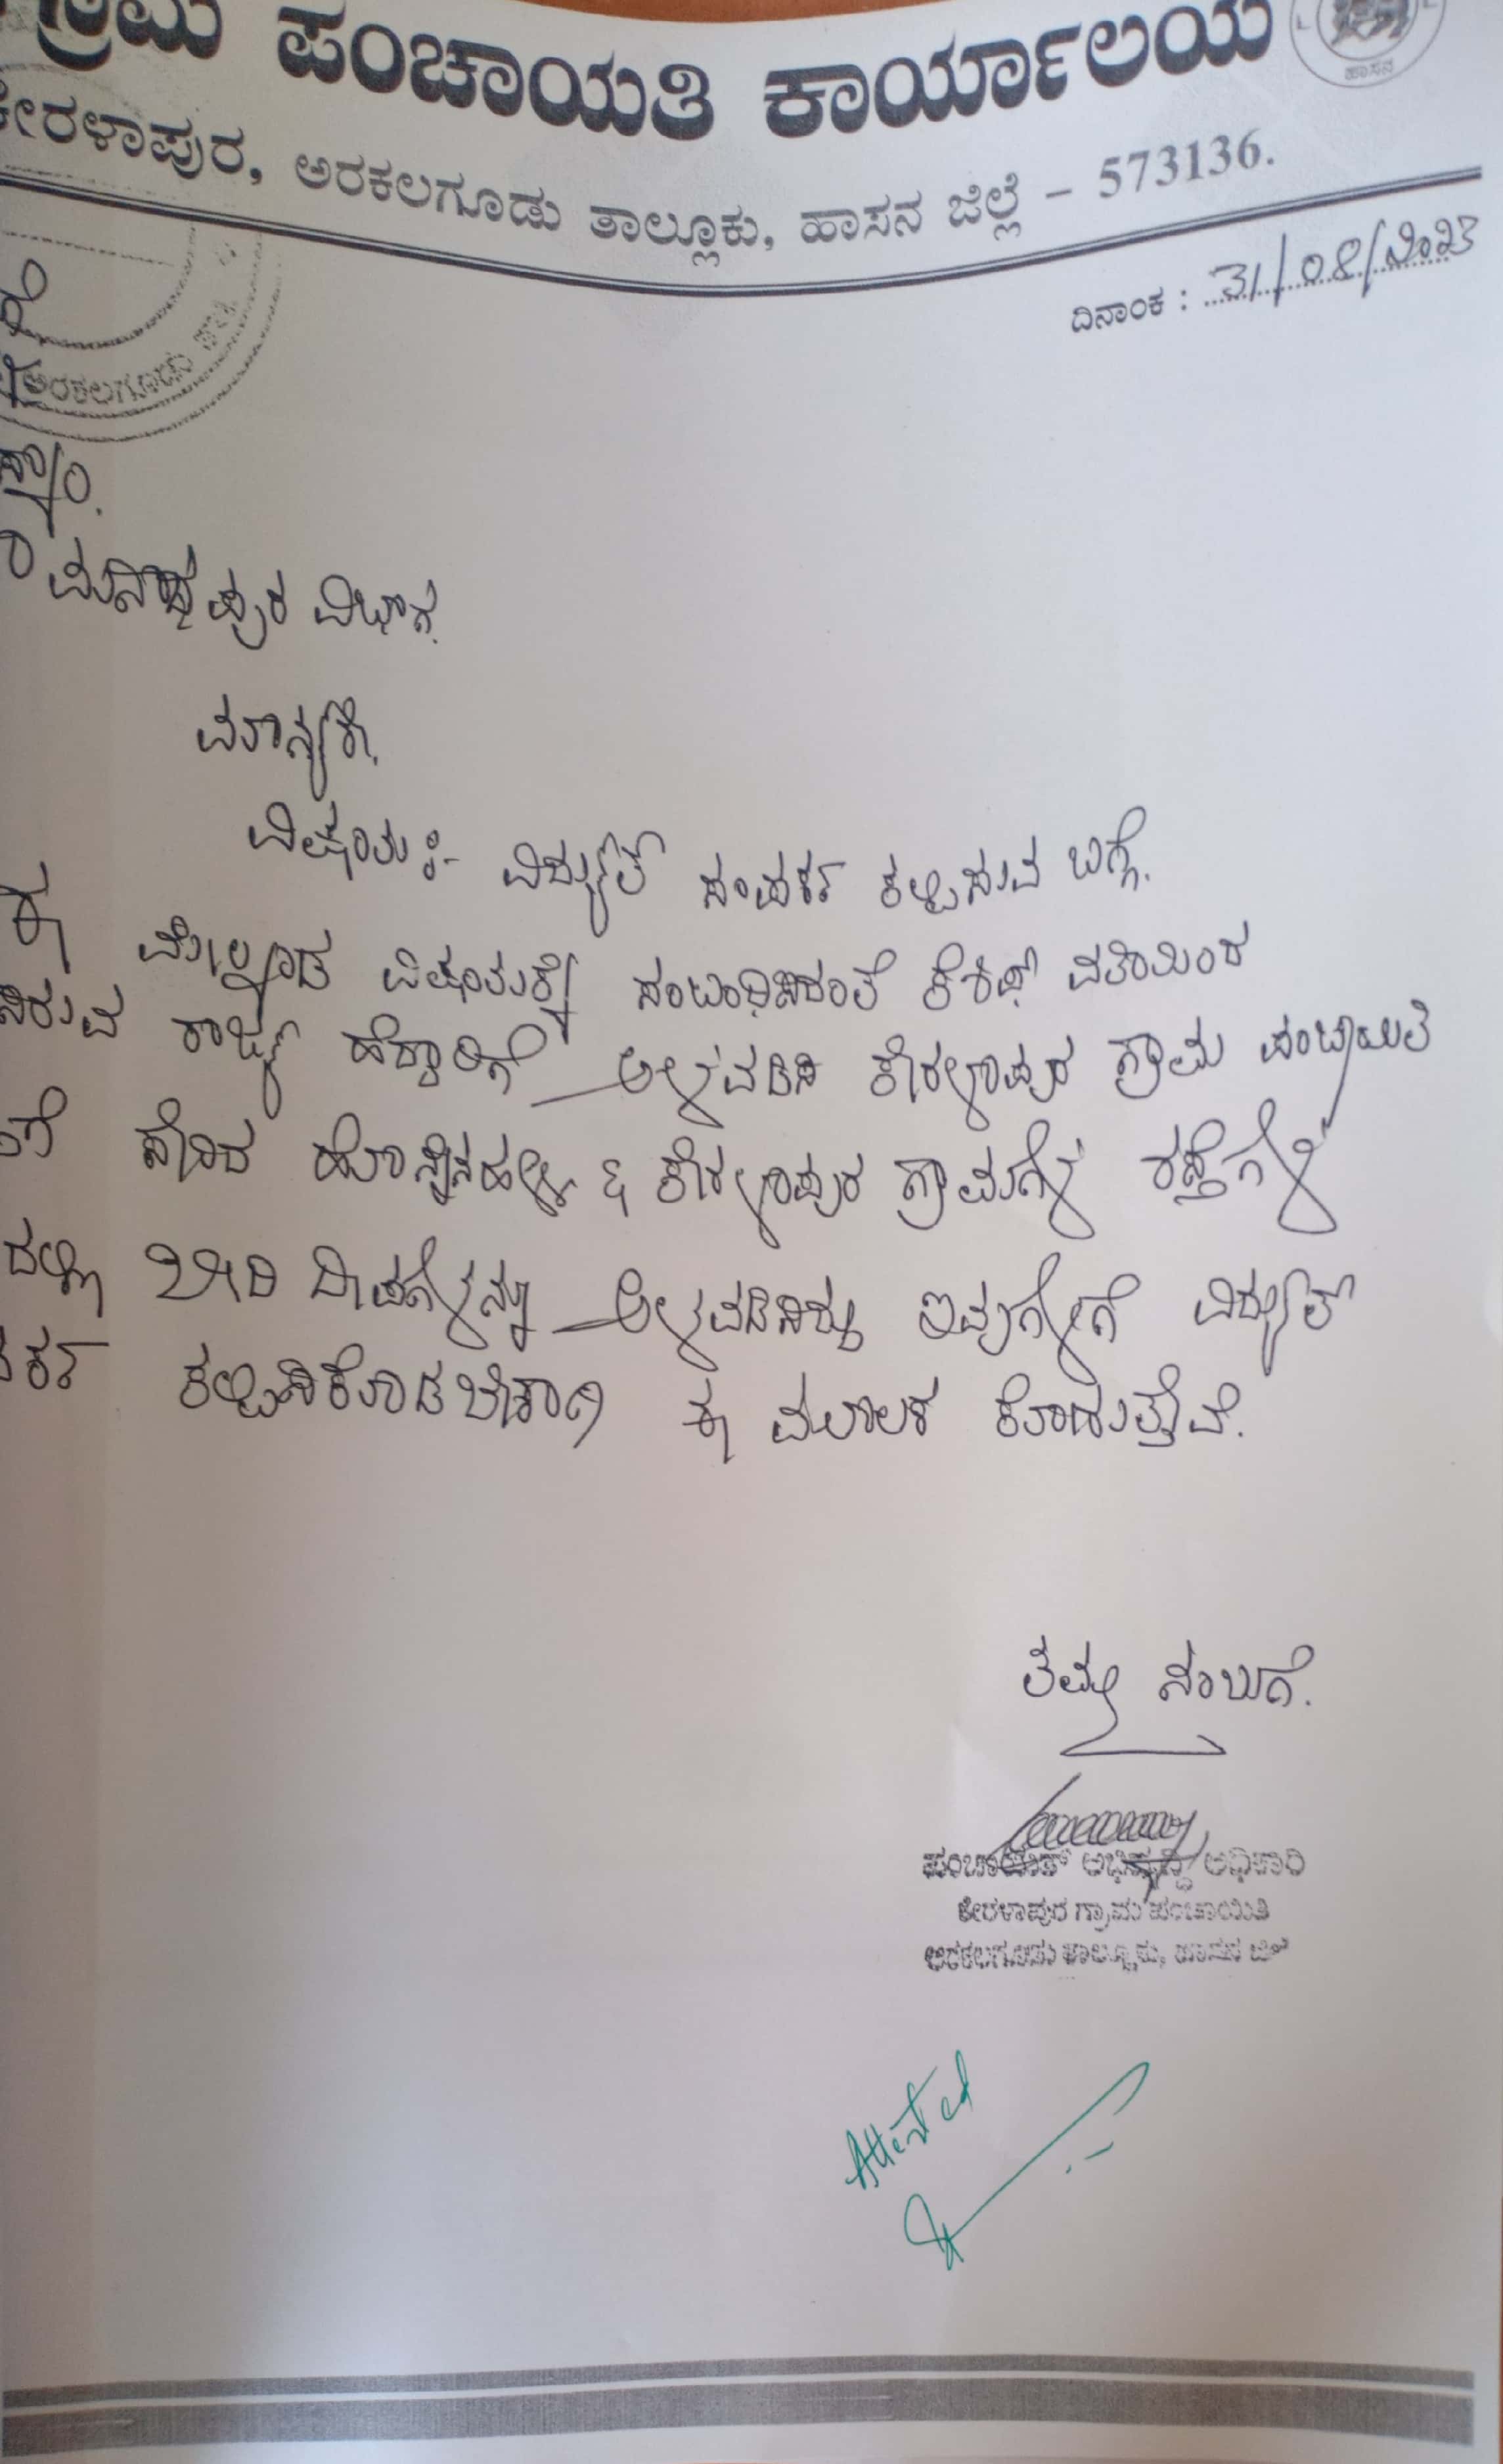 ಗ್ರಾಮ ಪಂಚಾಯತಿ ಕಾರ್ಯಾಲಯ
ಹಾಸನ
ಕೇರಳಾಪುರ, ಅರಕಲಗೂಡು ತಾಲ್ಲೂಕು, ಹಾಸನ ಜಿಲ್ಲೆ - 573136.
ದಿನಾಂಕ : 31/08/2023
ಅರಕಲಗೂಡು
ಪುರ ವಿಭಾಗ.
ಮಾನ್ಯರೇ,
ವಿಷಯ :- ವಿದ್ಯುತ್ ಸಂಪರ್ಕ ಕಲ್ಪಿಸುವ ಬಗ್ಗೆ.
ಈ ಮೇಲ್ಕಂಡ ವಿಷಯಕ್ಕೆ ಸಂಬಂಧಿಸಿದಂತೆ ಕೆಶಿಪ್ ವತಿಯಿಂದ
ರಾಜ್ಯ ಹೆದ್ದಾರಿಗೆ ಅಳವಡಿಸಿ ಕೇರಳಾಪುರ ಗ್ರಾಮ ಪಂಚಾಯಿತಿ
ಸೇರಿದ ಹೊನ್ನೇನಹಳ್ಳಿ & ಕೇರಳಾಪುರ ಗ್ರಾಮಗಳ ರಸ್ತೆಗಳ
ದಲ್ಲಿ ಬೀದಿ ದೀಪಗಳನ್ನು ಅಳವಡಿಸಿದ್ದು ಇವುಗಳಿಗೆ ವಿದ್ಯುತ್
ಕಲ್ಪಿಸಿಕೊಡಬೇಕಾಗಿ ಈ ಮೂಲಕ ಕೋರುತ್ತೇವೆ.
ತಮ್ಮ ನಂಬುಗೆ.
ಪಂಚಾಯತ್ ಅಭಿವೃದ್ಧಿ ಅಧಿಕಾರಿ
ಕೇರಳಾಪುರ ಗ್ರಾಮ ಪಂಚಾಯಿತಿ
ಅರಕಲಗೂಡು ತಾಲ್ಲೂಕು, ಹಾಸನ ಜಿಲ್ಲೆ
Attested